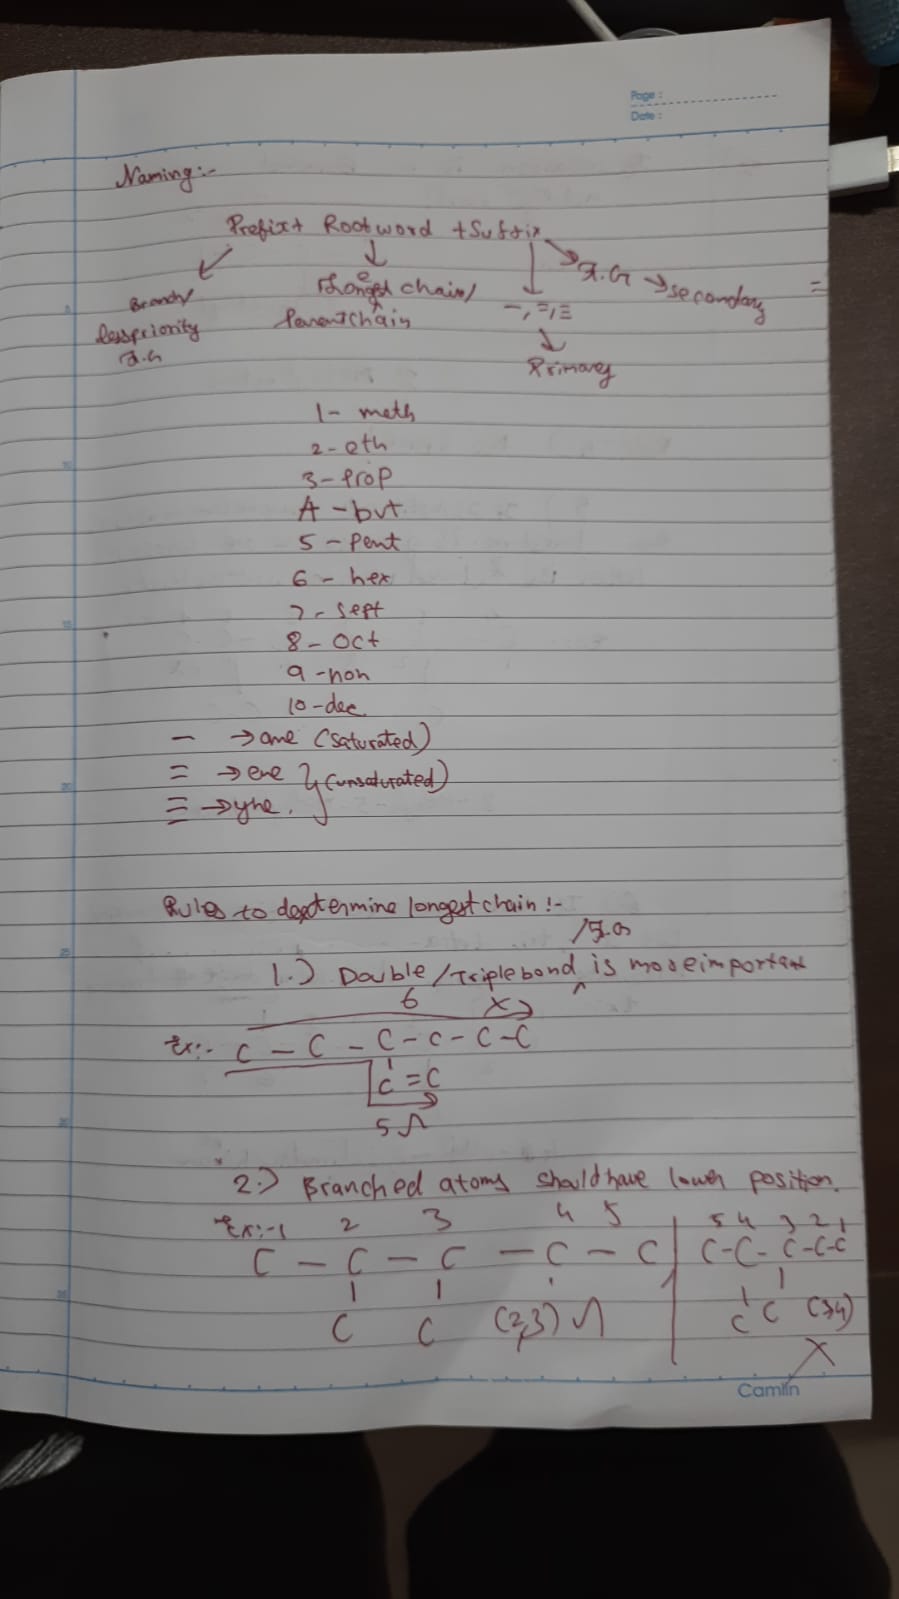 Page :
Date :
Naming:-
Prefix + Rootword + Suffix
F.G → secondary
Branch/
Longest chain/
-, =, ≡
less priority
Parent chain
F.G
Primary
1- meth
2- eth
3- prop
4 - but
5 - Pent
6 - hex
7 - sept
8 - Oct
9 - non
10 - dec
— → ane (saturated)
= → ene } (unsaturated)
≡ → yne.
Rules to determine longest chain :-
/F.G
1.) Double /Triple bond ^ is more important
6 X
Ex:- C - C - C - C - C - C
C = C
5
2.) Branched atoms should have lower position.
Ex:- 1 2 3 4 5 | 5 4 3 2 1
C - C - C - C - C | C-C-C-C-C
C C (2,3) | C C (3,4)
X
Camlin